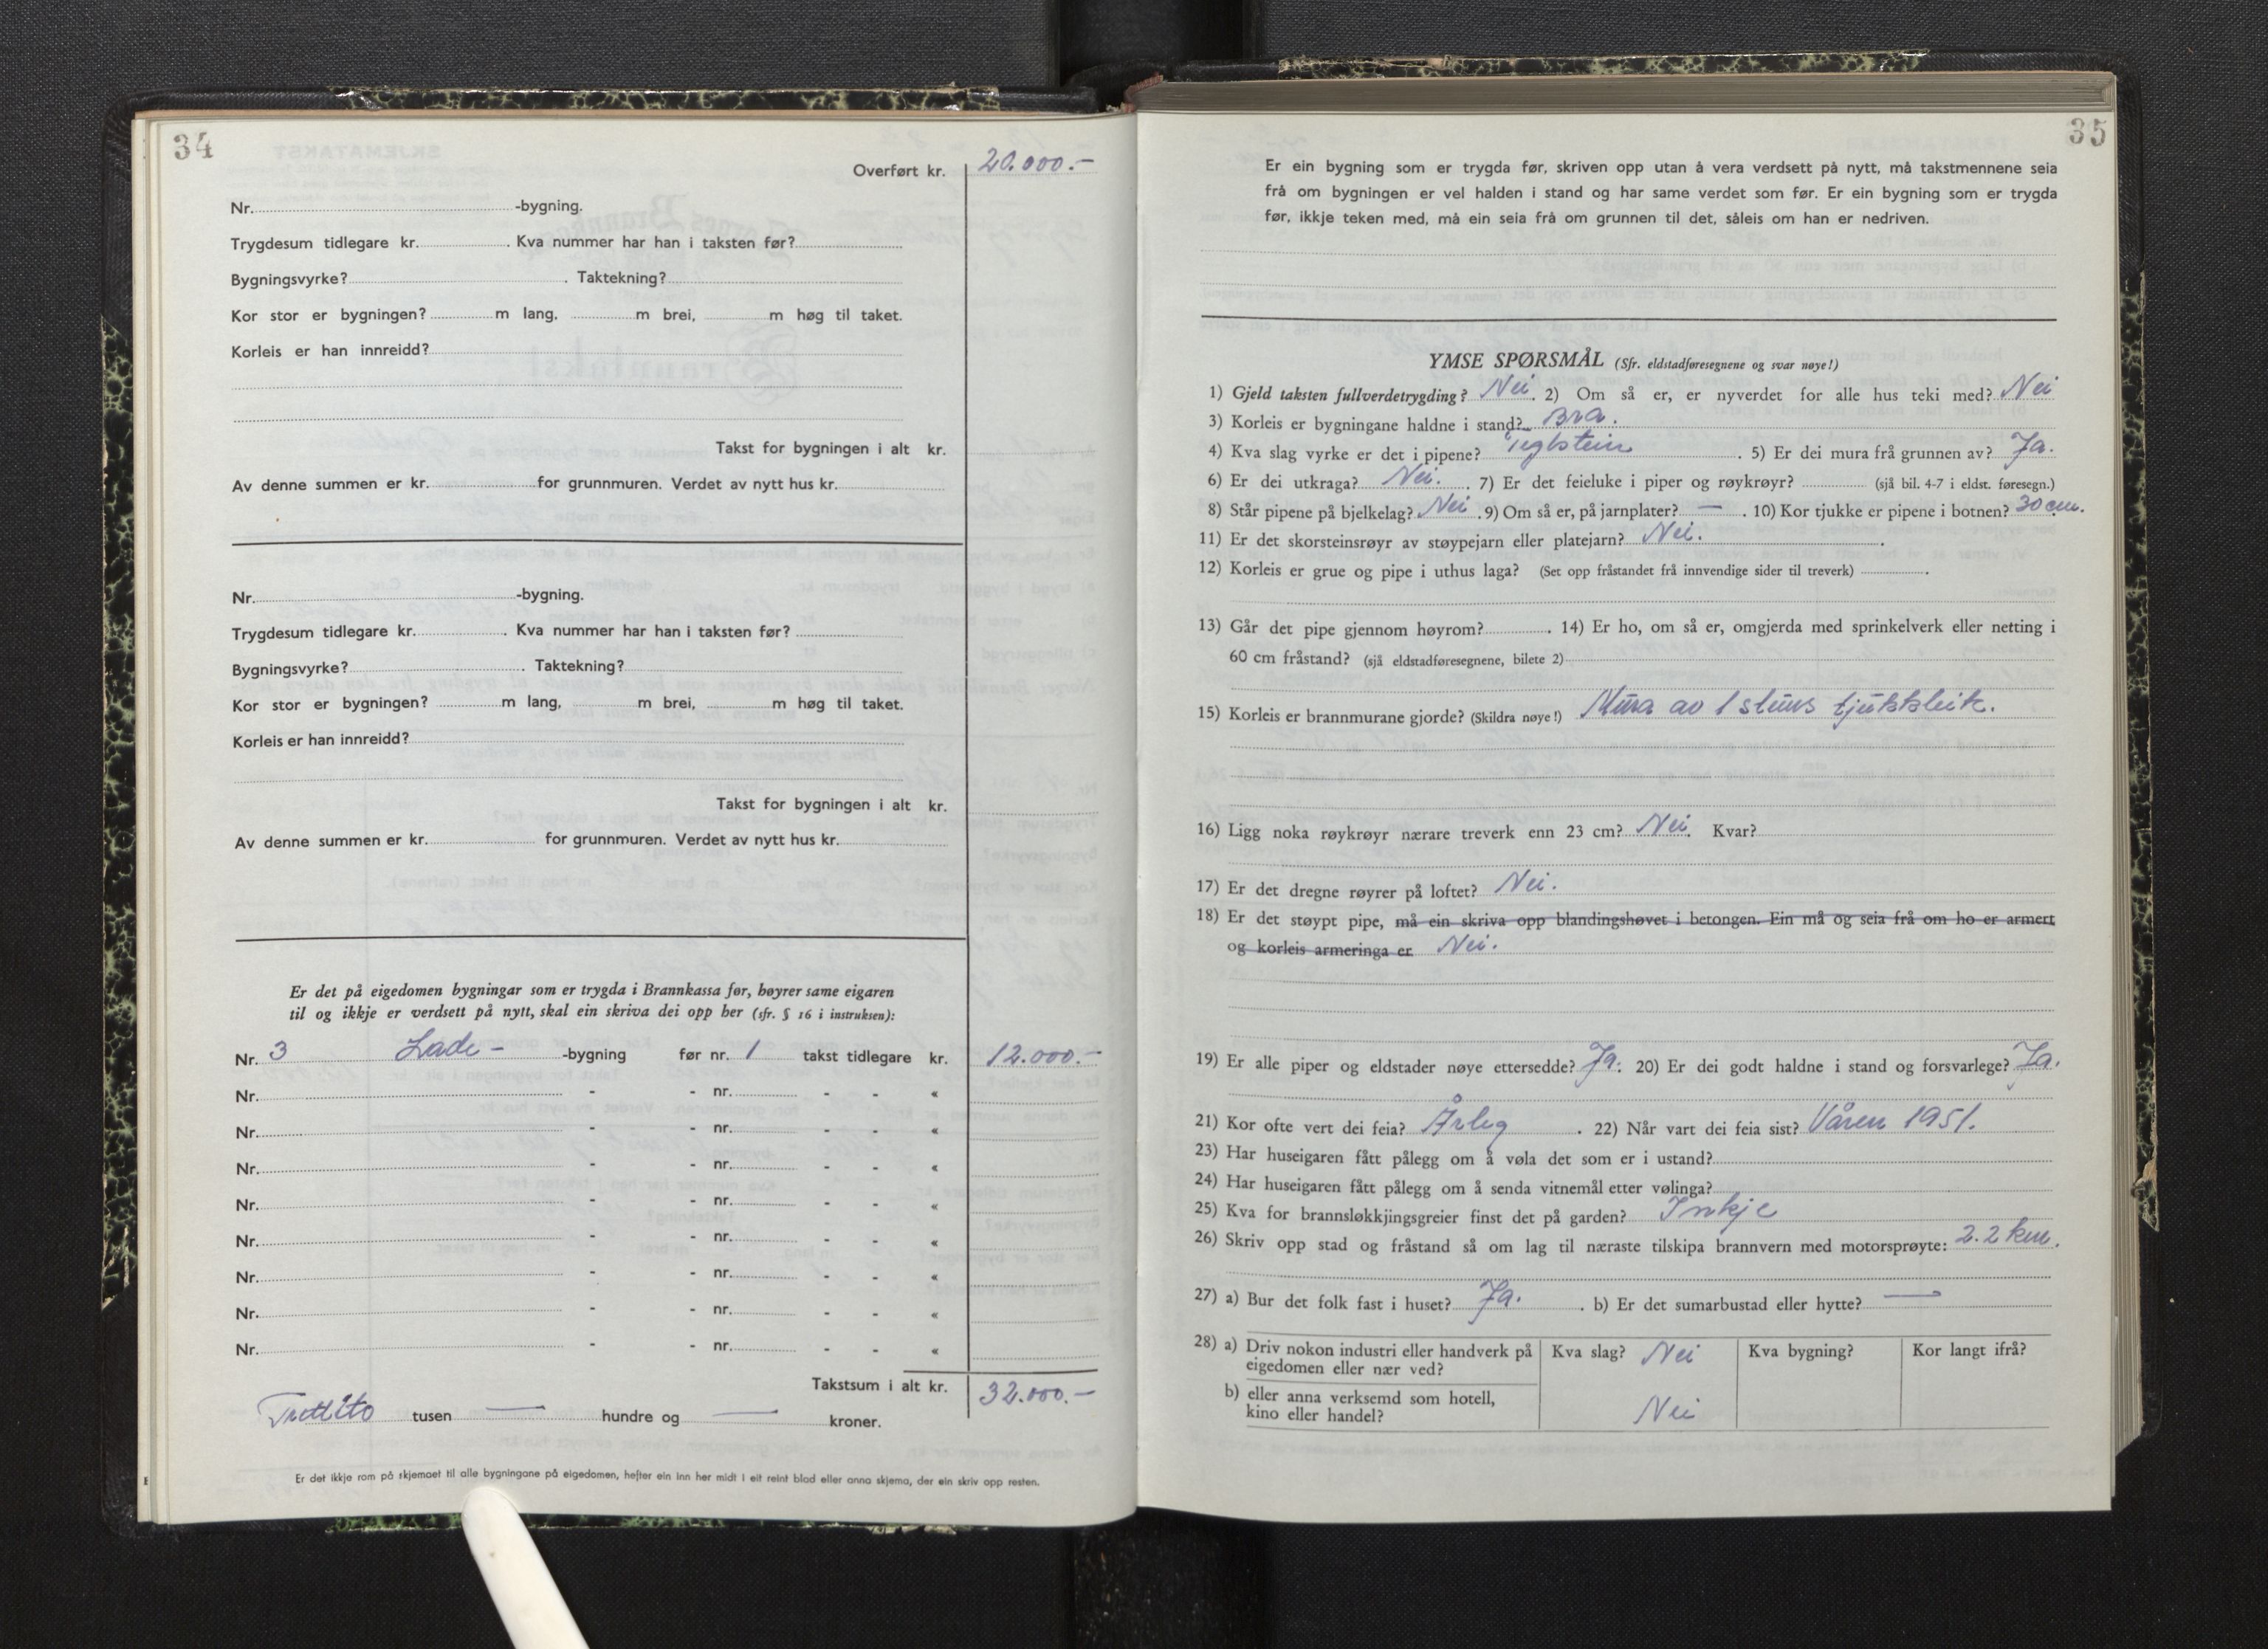 34
Overført kr. 20.000.-
Nr. -bygning.
Trygdesum tidlegare kr. . Kva nummer har han i taksten før?
Bygningsvyrke? . Taktekning?
Kor stor er bygningen? m lang, m brei, m høg til taket.
Korleis er han innreidd?
Takst for bygningen i alt kr.
Av denne summen er kr. for grunnmuren. Verdet av nytt hus kr.
Nr. -bygning.
Trygdesum tidlegare kr. . Kva nummer har han i taksten før?
Bygningsvyrke? . Taktekning?
Kor stor er bygningen? m lang, m brei, m høg til taket.
Korleis er han innreidd?
Takst for bygningen i alt kr.
Av denne summen er kr. for grunnmuren. Verdet av nytt hus kr.
Er det på eigedomen bygningar som er trygda i Brannkassa før, høyrer same eigaren
til og ikkje er verdsett på nytt, skal ein skriva dei opp her (sfr. § 16 i instruksen):
Nr. 3 Lade- -bygning før nr. 1 takst tidlegare kr. 12.000.-
Nr. - - nr. - - «
Nr. - - nr. - - «
Nr. - - nr. - - «
Nr. - - nr. - - «
Nr. - - nr. - - «
Nr. - - nr. - - «
Nr. - - nr. - - «
Nr. - - nr. - - «
Takstsum i alt kr. 32.000.-
Trettito tusen — hundre og — kroner.
Er det ikkje rom på skjemaet til alle bygningane på eigedomen, hefter ein inn her midt i eit reint blad eller anna skjema, der ein skriv opp resten.
35
Er ein bygning som er trygda før, skriven opp utan å vera verdsett på nytt, må takstmennene seia
frå om bygningen er vel halden i stand og har same verdet som før. Er ein bygning som er trygda
før, ikkje teken med, må ein seia frå om grunnen til det, såleis om han er nedriven.
YMSE SPØRSMÅL (Sfr. eldstadføresegnene og svar nøye!)
1) Gjeld taksten fullverdetrygding? Nei . 2) Om så er, er nyverdet for alle hus teki med? Nei
3) Korleis er bygningane haldne i stand? Bra.
4) Kva slag vyrke er det i pipene? Teglstein . 5) Er dei mura frå grunnen av? Ja.
6) Er dei utkraga? Nei. . 7) Er det feieluke i piper og røykrøyr? (sjå bil. 4-7 i eldst. føresegn.)
8) Står pipene på bjelkelag? Nei . 9) Om så er, på jarnplater? — . 10) Kor tjukke er pipene i botnen? 30 cm.
11) Er det skorsteinsrøyr av støypejarn eller platejarn? Nei. .
12) Korleis er grue og pipe i uthus laga? (Set opp fråstandet frå innvendige sider til treverk) .
13) Går det pipe gjennom høyrom? . 14) Er ho, om så er, omgjerda med sprinkelverk eller netting i
60 cm fråstand? (sjå eldstadføresegnene, bilete 2)
15) Korleis er brannmurane gjorde? (Skildra nøye!) Mura av 1 steins tjukkleik.
16) Ligg noka røykrøyr nærare treverk enn 23 cm? Nei. Kvar?
17) Er det dregne røyrer på loftet? Nei.
18) Er det støypt pipe, må ein skriva opp blandingshøvet i betongen. Ein må og seia frå om ho er armert
og korleis armeringa er. Nei.
19) Er alle piper og eldstader nøye ettersedde? Ja. 20) Er dei godt haldne i stand og forsvarlege? Ja.
21) Kor ofte vert dei feia? Årleg . 22) Når vart dei feia sist? Våren 1951.
23) Har huseigaren fått pålegg om å vøla det som er i ustand?
24) Har huseigaren fått pålegg om å senda vitnemål etter vølinga?
25) Kva for brannsløkkjingsgreier finst det på garden? Inkje
26) Skriv opp stad og fråstand så om lag til næraste tilskipa brannvern med motorsprøyte: 2.2 km.
27) a) Bur det folk fast i huset? Ja. . b) Er det sumarbustad eller hytte? —
28) a) Driv nokon industri eller handverk på Kva slag? Nei Kva bygning? Kor langt ifrå?
eigedomen eller nær ved?
b) eller anna verksemd som hotell,
kino eller handel? Nei